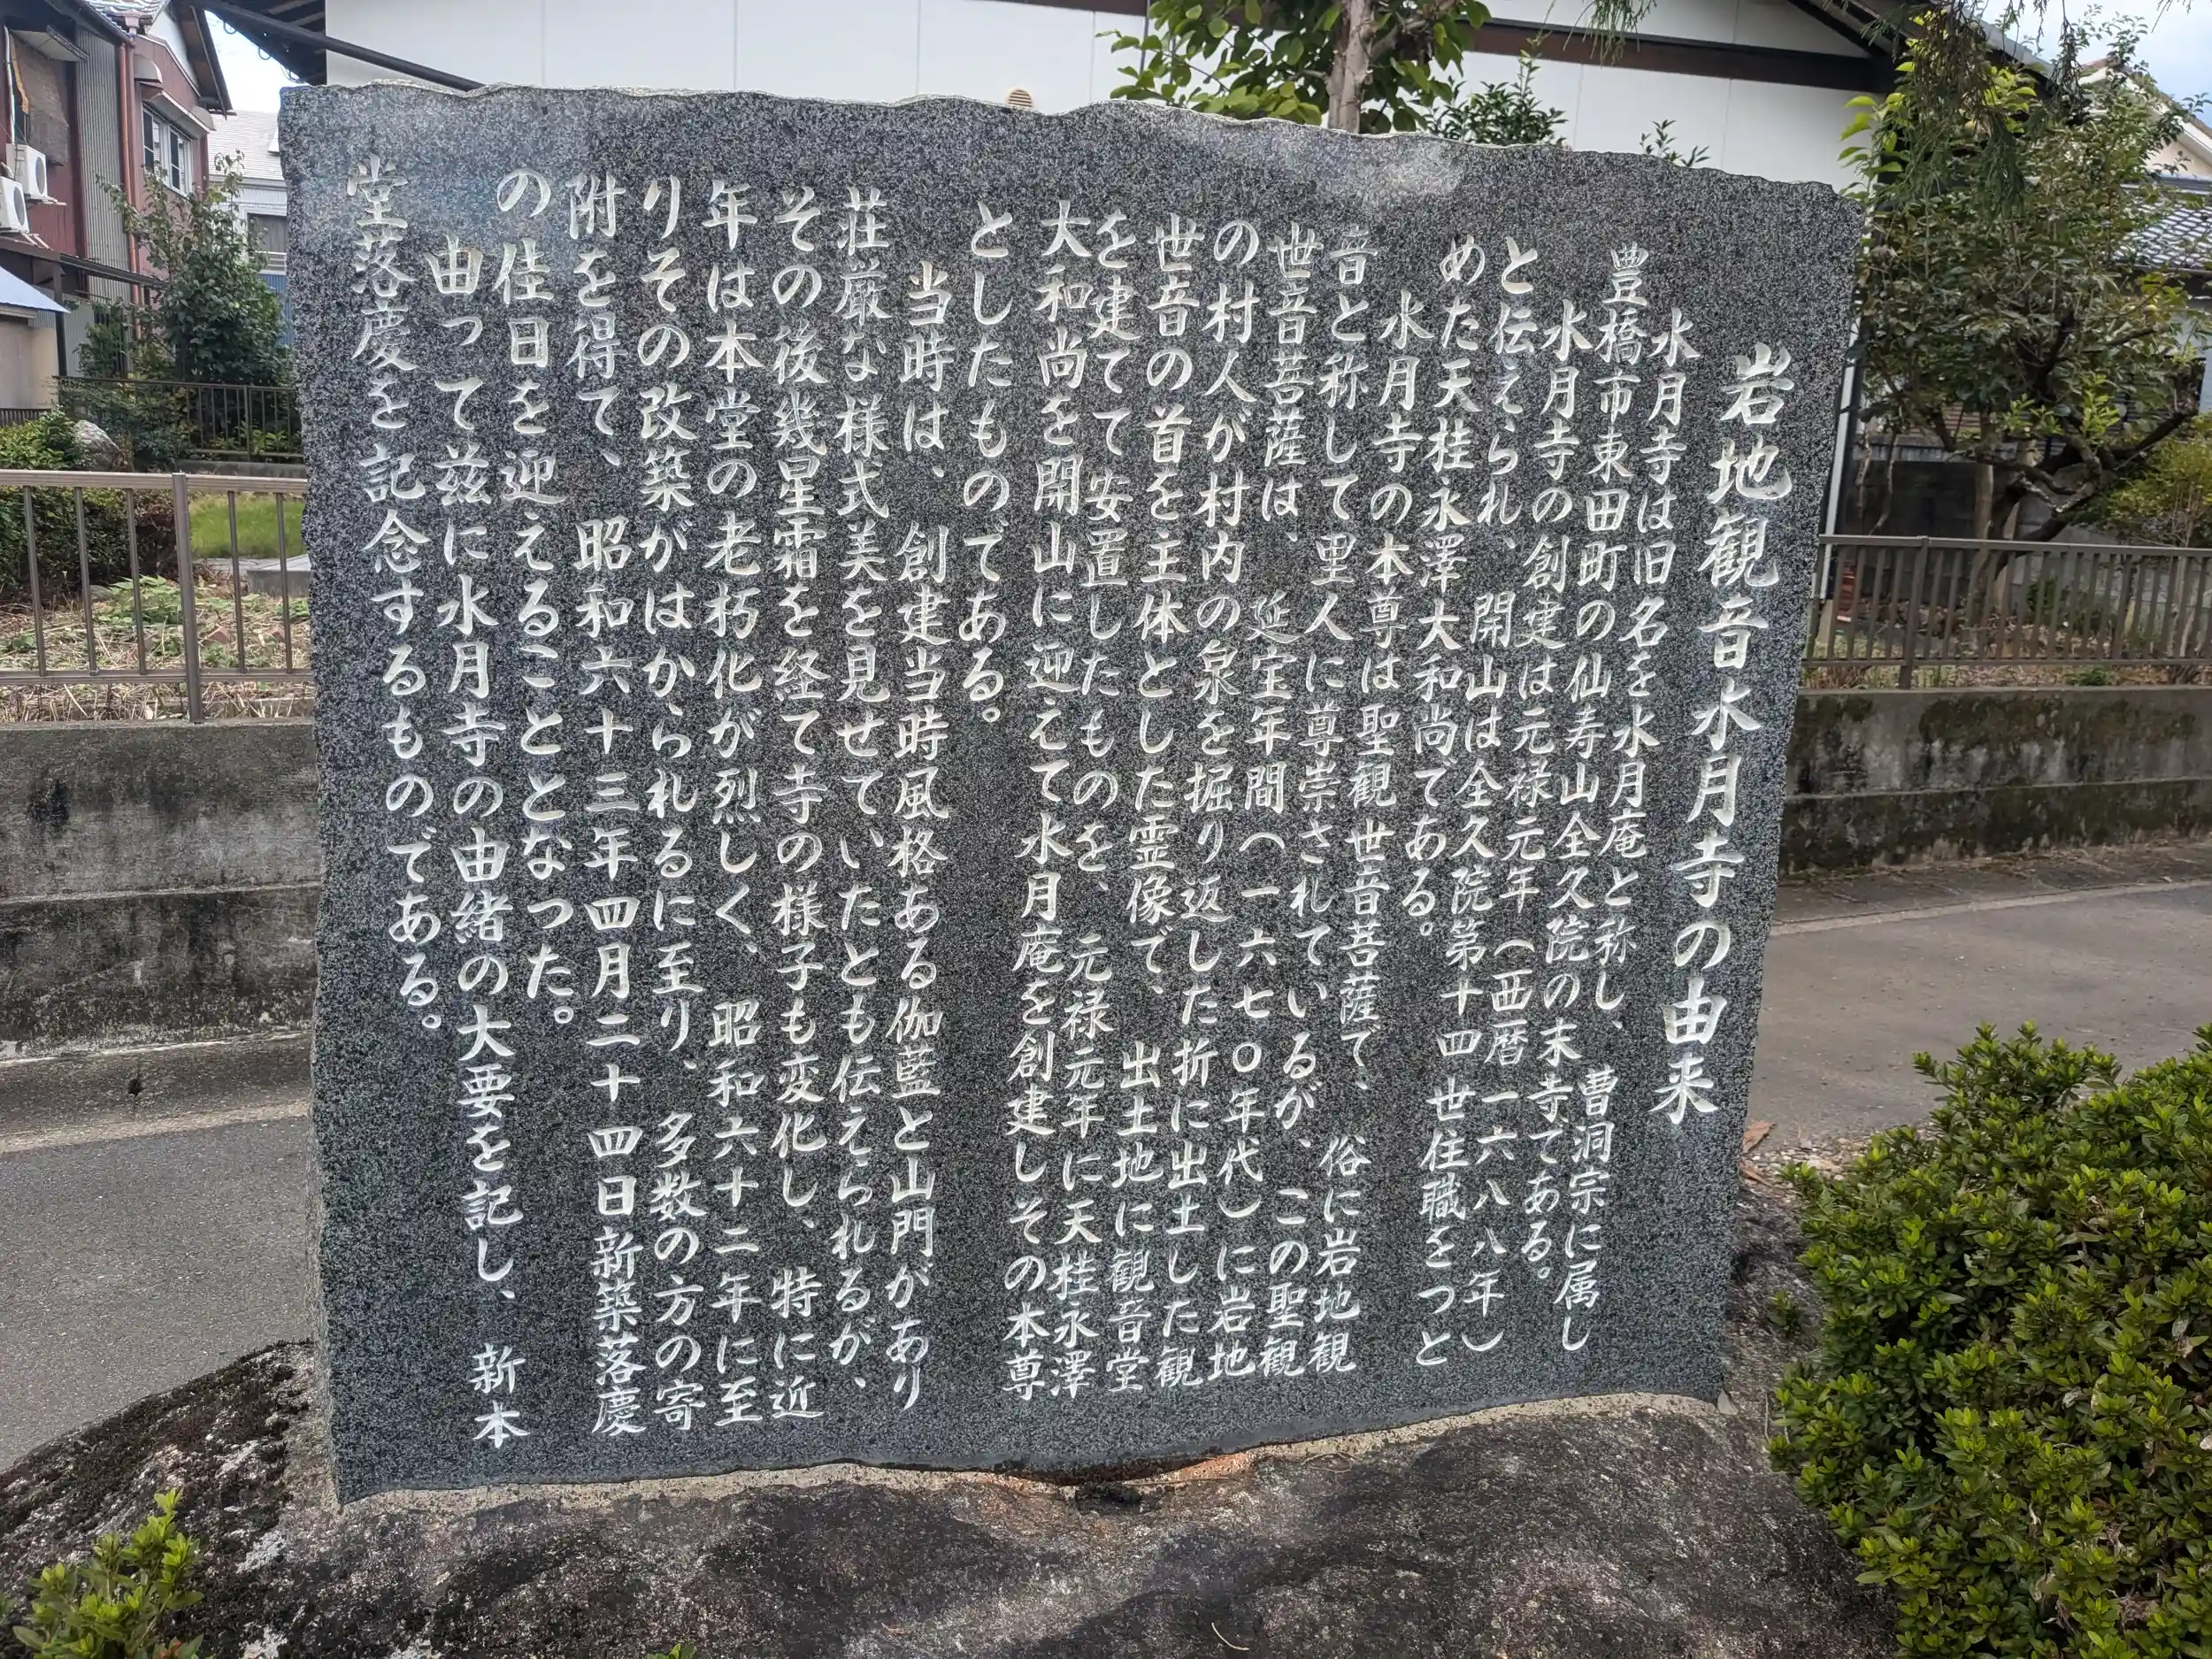 岩地観音水月寺の由来
水月寺は旧名を水月庵と称し、曹洞宗に属し
豊橋市東田町の仙寿山全久院の末寺である。
水月寺の創建は元禄元年（西暦一六八八年）
と伝えられ、開山は全久院第十四世住職をつと
めた天桂永澤大和尚である。
水月寺の本尊は聖観世音菩薩で、俗に岩地観
音と称して里人に尊崇されているが、この聖観
世音菩薩は、延宝年間（一六七〇年代）に岩地
の村人が村内の泉を掘り返した折に出土した観
世音の首を主体とした霊像で、出土地に観音堂
を建てて安置したものを、元禄元年に天桂永澤
大和尚を開山に迎えて水月庵を創建しその本尊
としたものである。
当時は、創建当時風格ある伽藍と山門があり
荘厳な様式美を見せていたとも伝えられるが、
その後幾星霜を経て寺の様子も変化し、特に近
年は本堂の老朽化が烈しく、昭和六十二年に至
りその改築がはかられるに至り、多数の方の寄
附を得て、昭和六十三年四月二十四日新築落慶
の佳日を迎えることとなった。
由って茲に水月寺の由緒の大要を記し、新本
堂落慶を記念するものである。